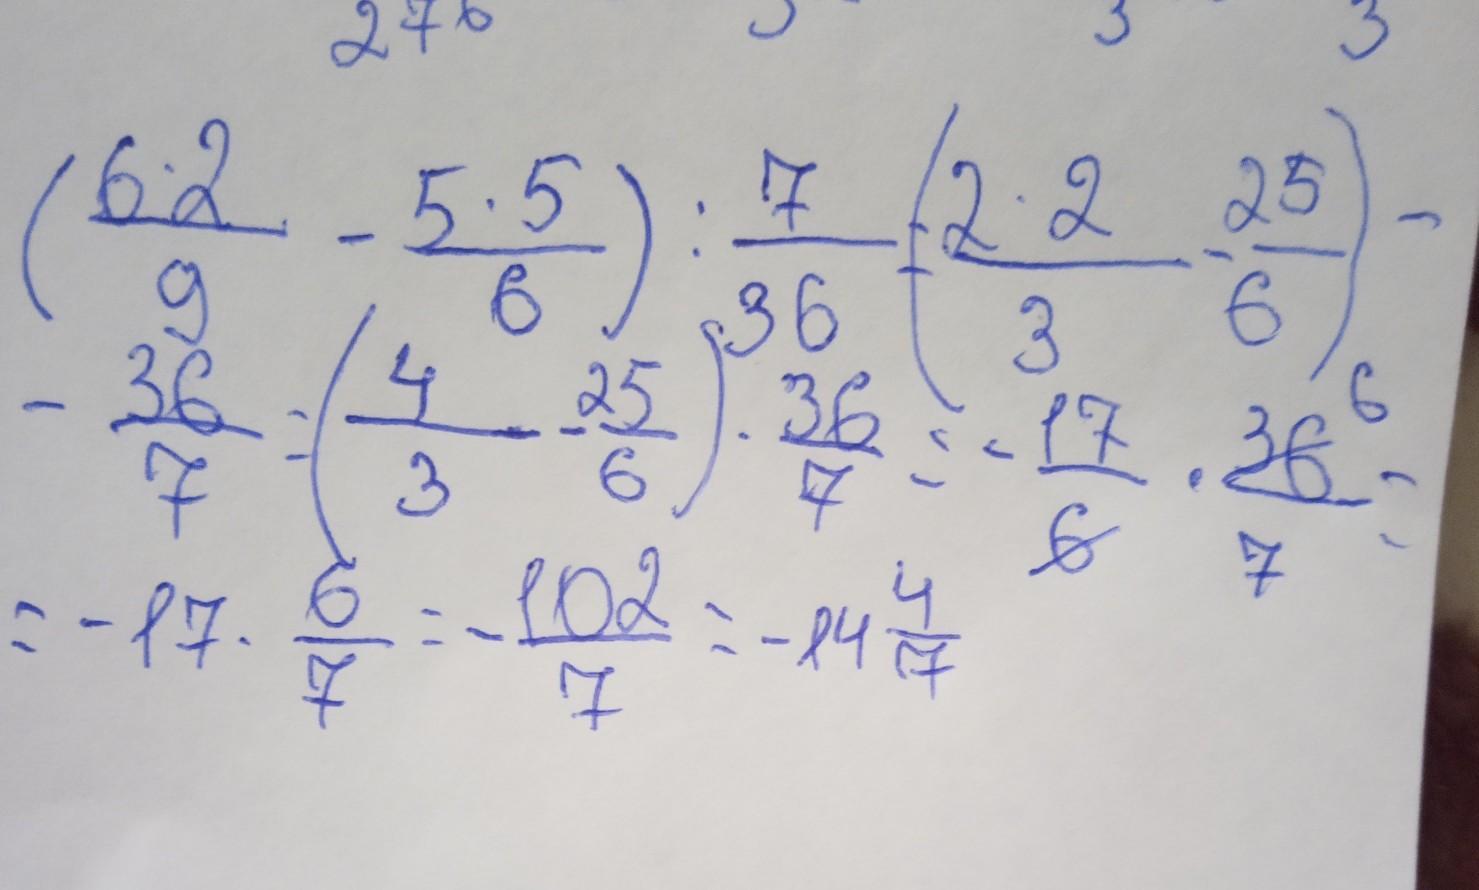 276 3 3
(6·2/9 - 5·5/6) : 7/36 = (2·2/3 - 25/6) -
- 36/7 = (4/3 - 25/6) · 36/7 = -17/6 · 36/7 6 =
= -17 · 6/7 = -102/7 = -14 4/7